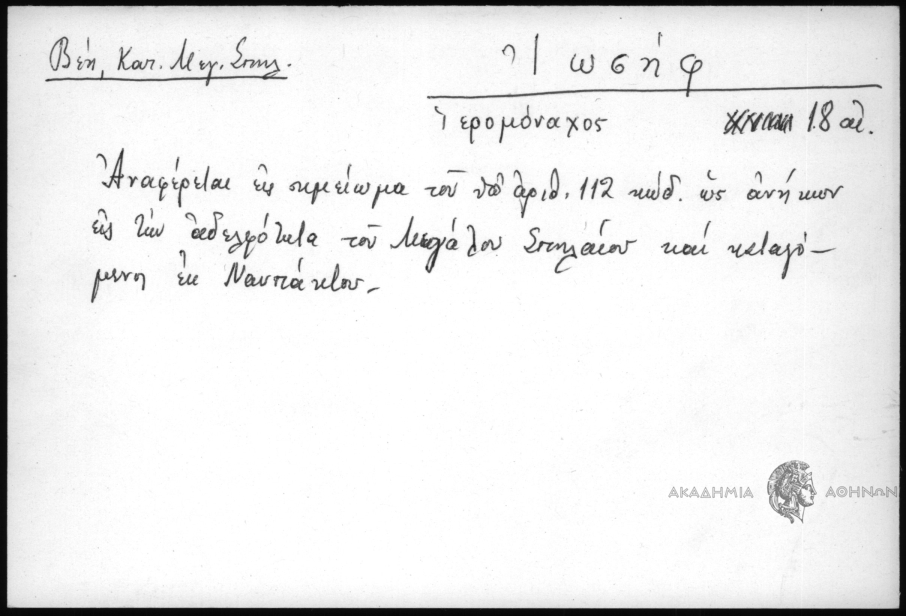 Βέη, Κατ. Μεγ. Σπηλ.
Ἰωσήφ
Ἱερομόναχος 18 αἰ.
Ἀναφέρεται εἰς σημείωμα τοῦ ὑπ' ἀριθ. 112 κώδ. ὡς ἀνήκων
εἰς τὴν ἀδελφότητα τοῦ Μεγάλου Σπηλαίου καί καταγό-
μενος ἐκ Ναυπάκτου.
ΑΚΑΔΗΜΙΑ ΑΘΗΝΩΝ